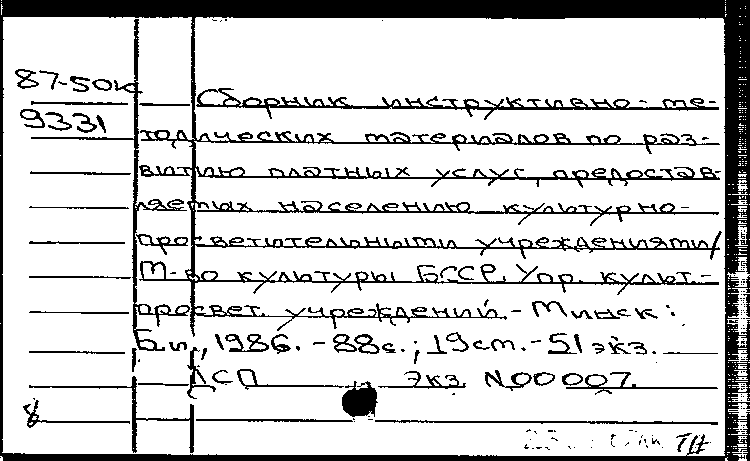 87-50к
9331
Сборник инструктивно-ме-
тодических материалов по раз-
витию платных услуг, предостав-
ляемых населению культурно-
просветительными учреждениями/
М-во культуры БССР, Упр. культ.-
просвет. учреждений. - Минск:
Б.и., 1986. - 88с.; 19см. - 51 экз.
ДСП Экз. N00007.
8